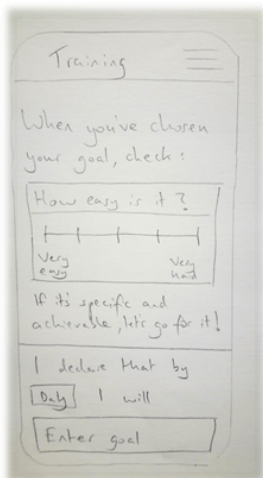 Training
When you've chosen
your goal, check:
How easy is it?
Very Very
easy hard
If it's specific and
achievable, let's go for it!
I declare that by
Date I will
Enter goal